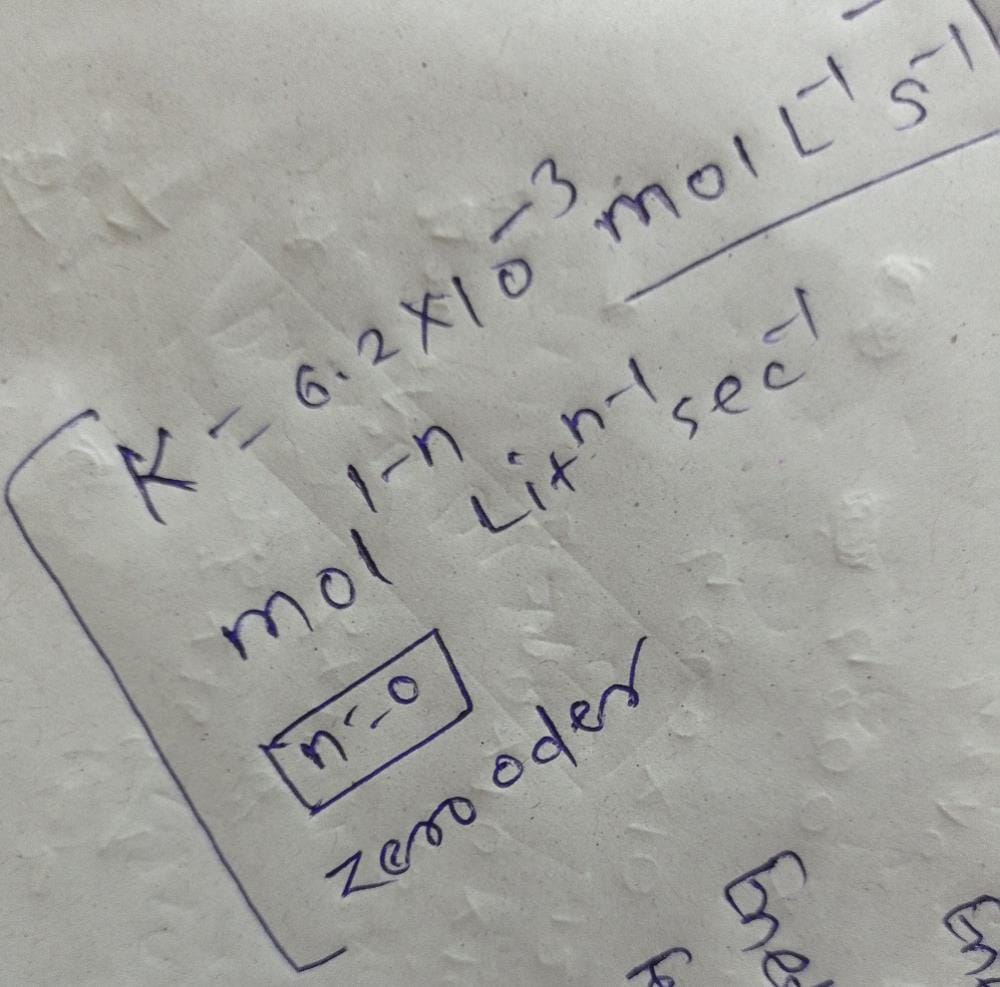 K = 6.2×10⁻³ mol L⁻¹ s⁻¹
mol¹⁻ⁿ Litⁿ⁻¹ sec⁻¹
n=0
zero oder